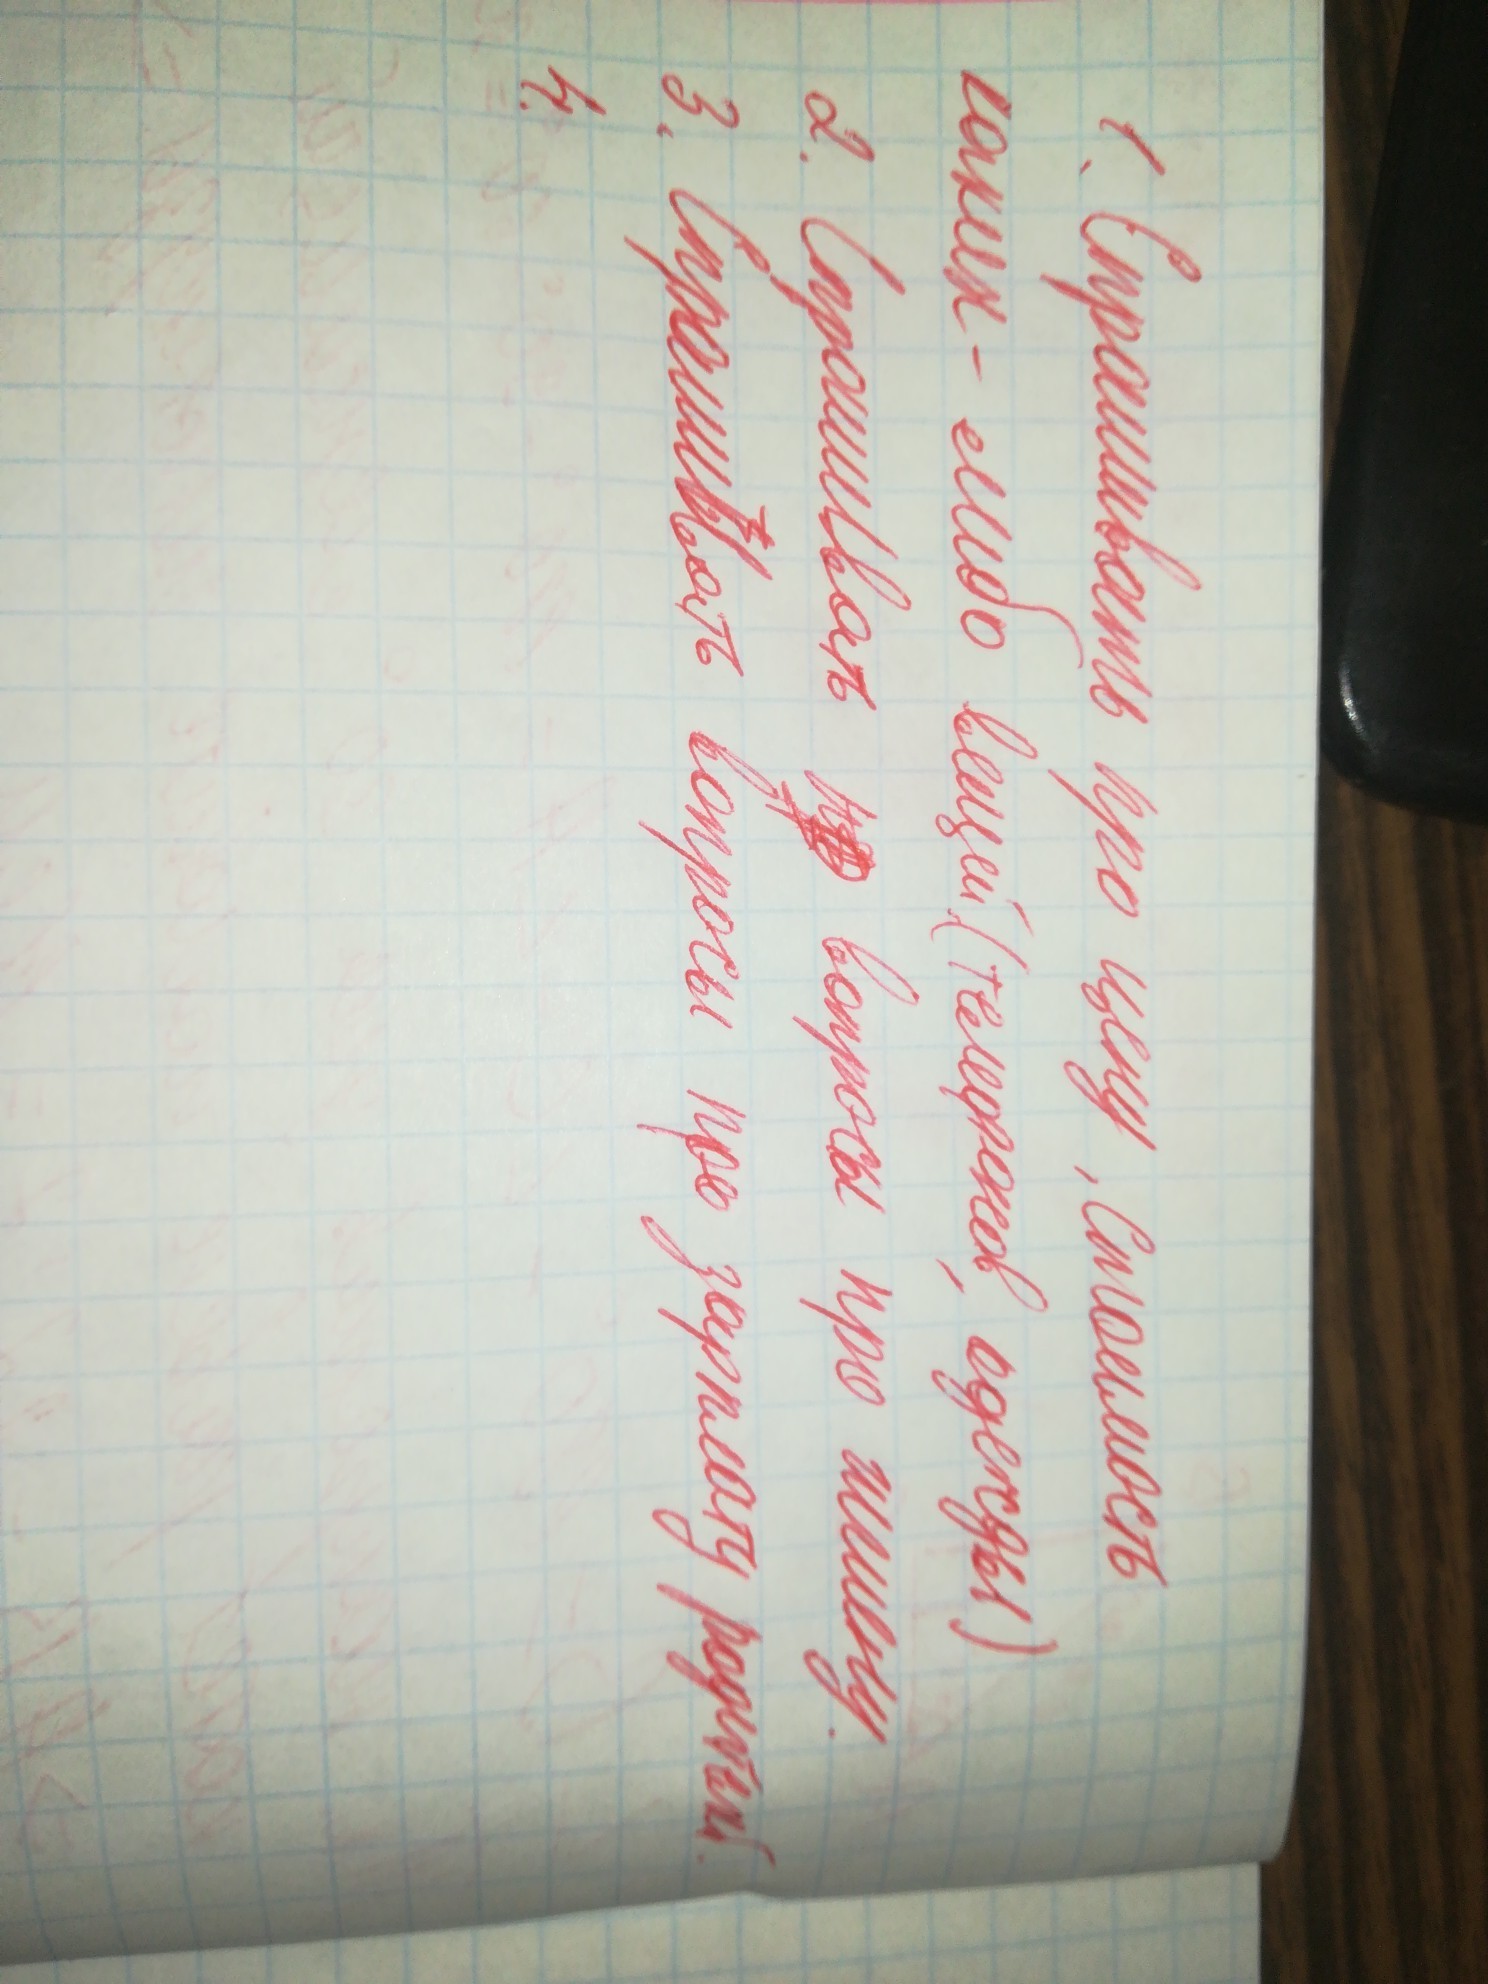 1. Спрашивать про цену, стоимость
каких-либо вещей (телефонов, одежды)
2. Спрашивать вопросы про
3. Спрашивать вопросы про зарплату родителей.
4.